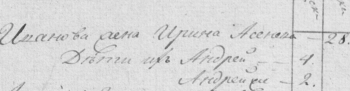 Иванова жена Ирина Асеѣва — 28.
Дѣти ихъ Андрей — 4.
Андрей же — 2.